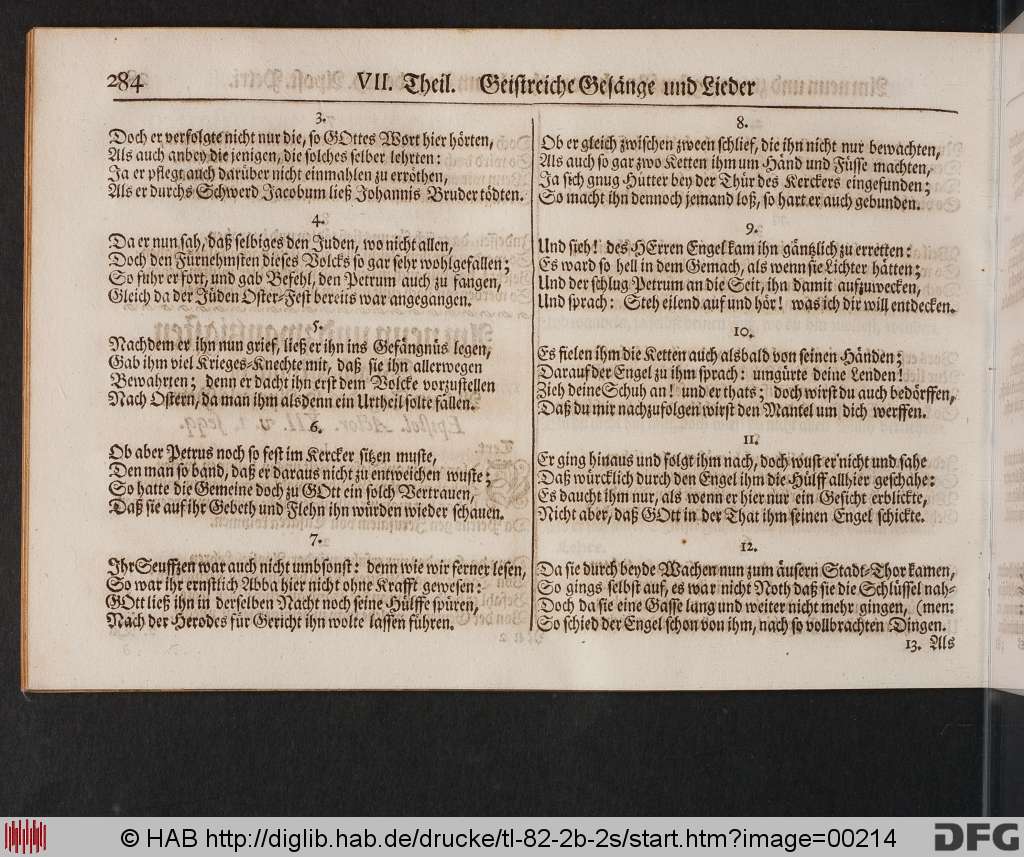 284 VII. Theil. Geistreiche Gesänge und Lieder
3.
Doch er verfolgte nicht nur die, so GOttes Wort hier hörten,
Als auch anbey die jenigen, die solches selber lehrten:
Ja er pflegt auch darüber nicht einmahlen zu erröthen,
Als er durchs Schwerd Jacobum ließ Johannis Bruder tödten.
4.
Da er nun sah, daß selbiges den Juden, wo nicht allen,
Doch den Fürnehmsten dieses Volcks so gar sehr wohlgefallen;
So fuhr er fort, und gab Befehl, den Petrum auch zu fangen,
Gleich da der Jüden Oster-Fest bereits war angegangen.
5.
Nachdem er ihn nun grief, ließ er ihn ins Gefängnüs legen,
Gab ihm viel Krieges-Knechte mit, daß sie ihn allerwegen
Bewahrten; denn er dacht ihn erst dem Volcke vorzustellen
Nach Ostern, da man ihm alsdenn ein Urtheil solte fällen.
6.
Ob aber Petrus noch so fest im Kercker sitzen muste,
Den man so band, daß er daraus nicht zu entweichen wuste;
So hatte die Gemeine doch zu GOtt ein solch Vertrauen,
Daß sie auf ihr Gebeth und Flehn ihn würden wieder schauen.
7.
Ihr Seuffzen war auch nicht umbsonst: denn wie wir ferner lesen,
So war ihr ernstlich Abba hier nicht ohne Krafft gewesen:
GOtt ließ ihn in derselben Nacht noch seine Hülffe spüren,
Nach der Herodes für Gericht ihn wolte lassen führen.
8.
Ob er gleich zwischen zween schlief, die ihn nicht nur bewachten,
Als auch so gar zwo Ketten ihm um Händ und Füsse machten,
Ja sich gnug Hütter bey der Thür des Kerckers eingefunden;
So macht ihn dennoch jemand loß, so hart er auch gebunden.
9.
Und sieh! des HErren Engel kam ihn gäntzlich zu erretten:
Es ward so hell in dem Gemach, als wenn sie Lichter hätten;
Und der schlug Petrum an die Seit, ihn damit aufzuwecken,
Und sprach: Steh eilend auf und hör! was ich dir will entdecken.
10.
Es fielen ihm die Ketten auch alsbald von seinen Händen;
Darauf der Engel zu ihm sprach: umgürte deine Lenden!
Zieh deine Schuh an! und er thats; doch wirst du auch bedörffen,
Daß du mir nachzufolgen wirst den Mantel um dich werffen.
11.
Er ging hinaus und folgt ihm nach, doch wust er nicht und sahe
Daß würcklich durch den Engel ihm die Hülff allhier geschahe:
Es daucht ihm nur, als wenn er hier nur ein Gesicht erblickte,
Nicht aber, daß GOtt in der That ihm seinen Engel schickte.
12.
Da sie durch beyde Wachen nun zum äusern Stadt-Thor kamen,
So gings selbst auf, es war nicht Noth daß sie die Schlüssel nah-
Doch da sie eine Gasse lang und weiter nicht mehr gingen, (men:
So schied der Engel schon von ihm, nach so vollbrachten Dingen.
13. Als
© HAB http://diglib.hab.de/drucke/tl-82-2b-2s/start.htm?image=00214
DFG